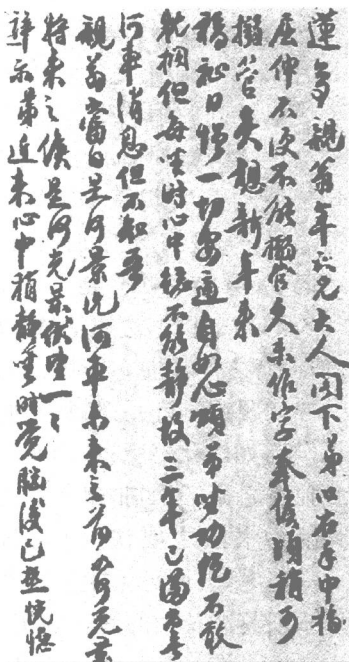 蓮身親翁年記兄大人閣下弟以右手中指
屈伸不便不能搦管久未作字奉候頃稍可
搦管矣想新年來
福祉日增一切安適自如心頌弟坐功從不敢
耽擱但每坐時心中總不能静故三年已滿尚無
河車消息但不知吾
親翁當日是何景况河車未來之前如何光景
將來之候是何光景伏望一一
詳示弟近來心中稍静坐時覺腦後已熱恍惚